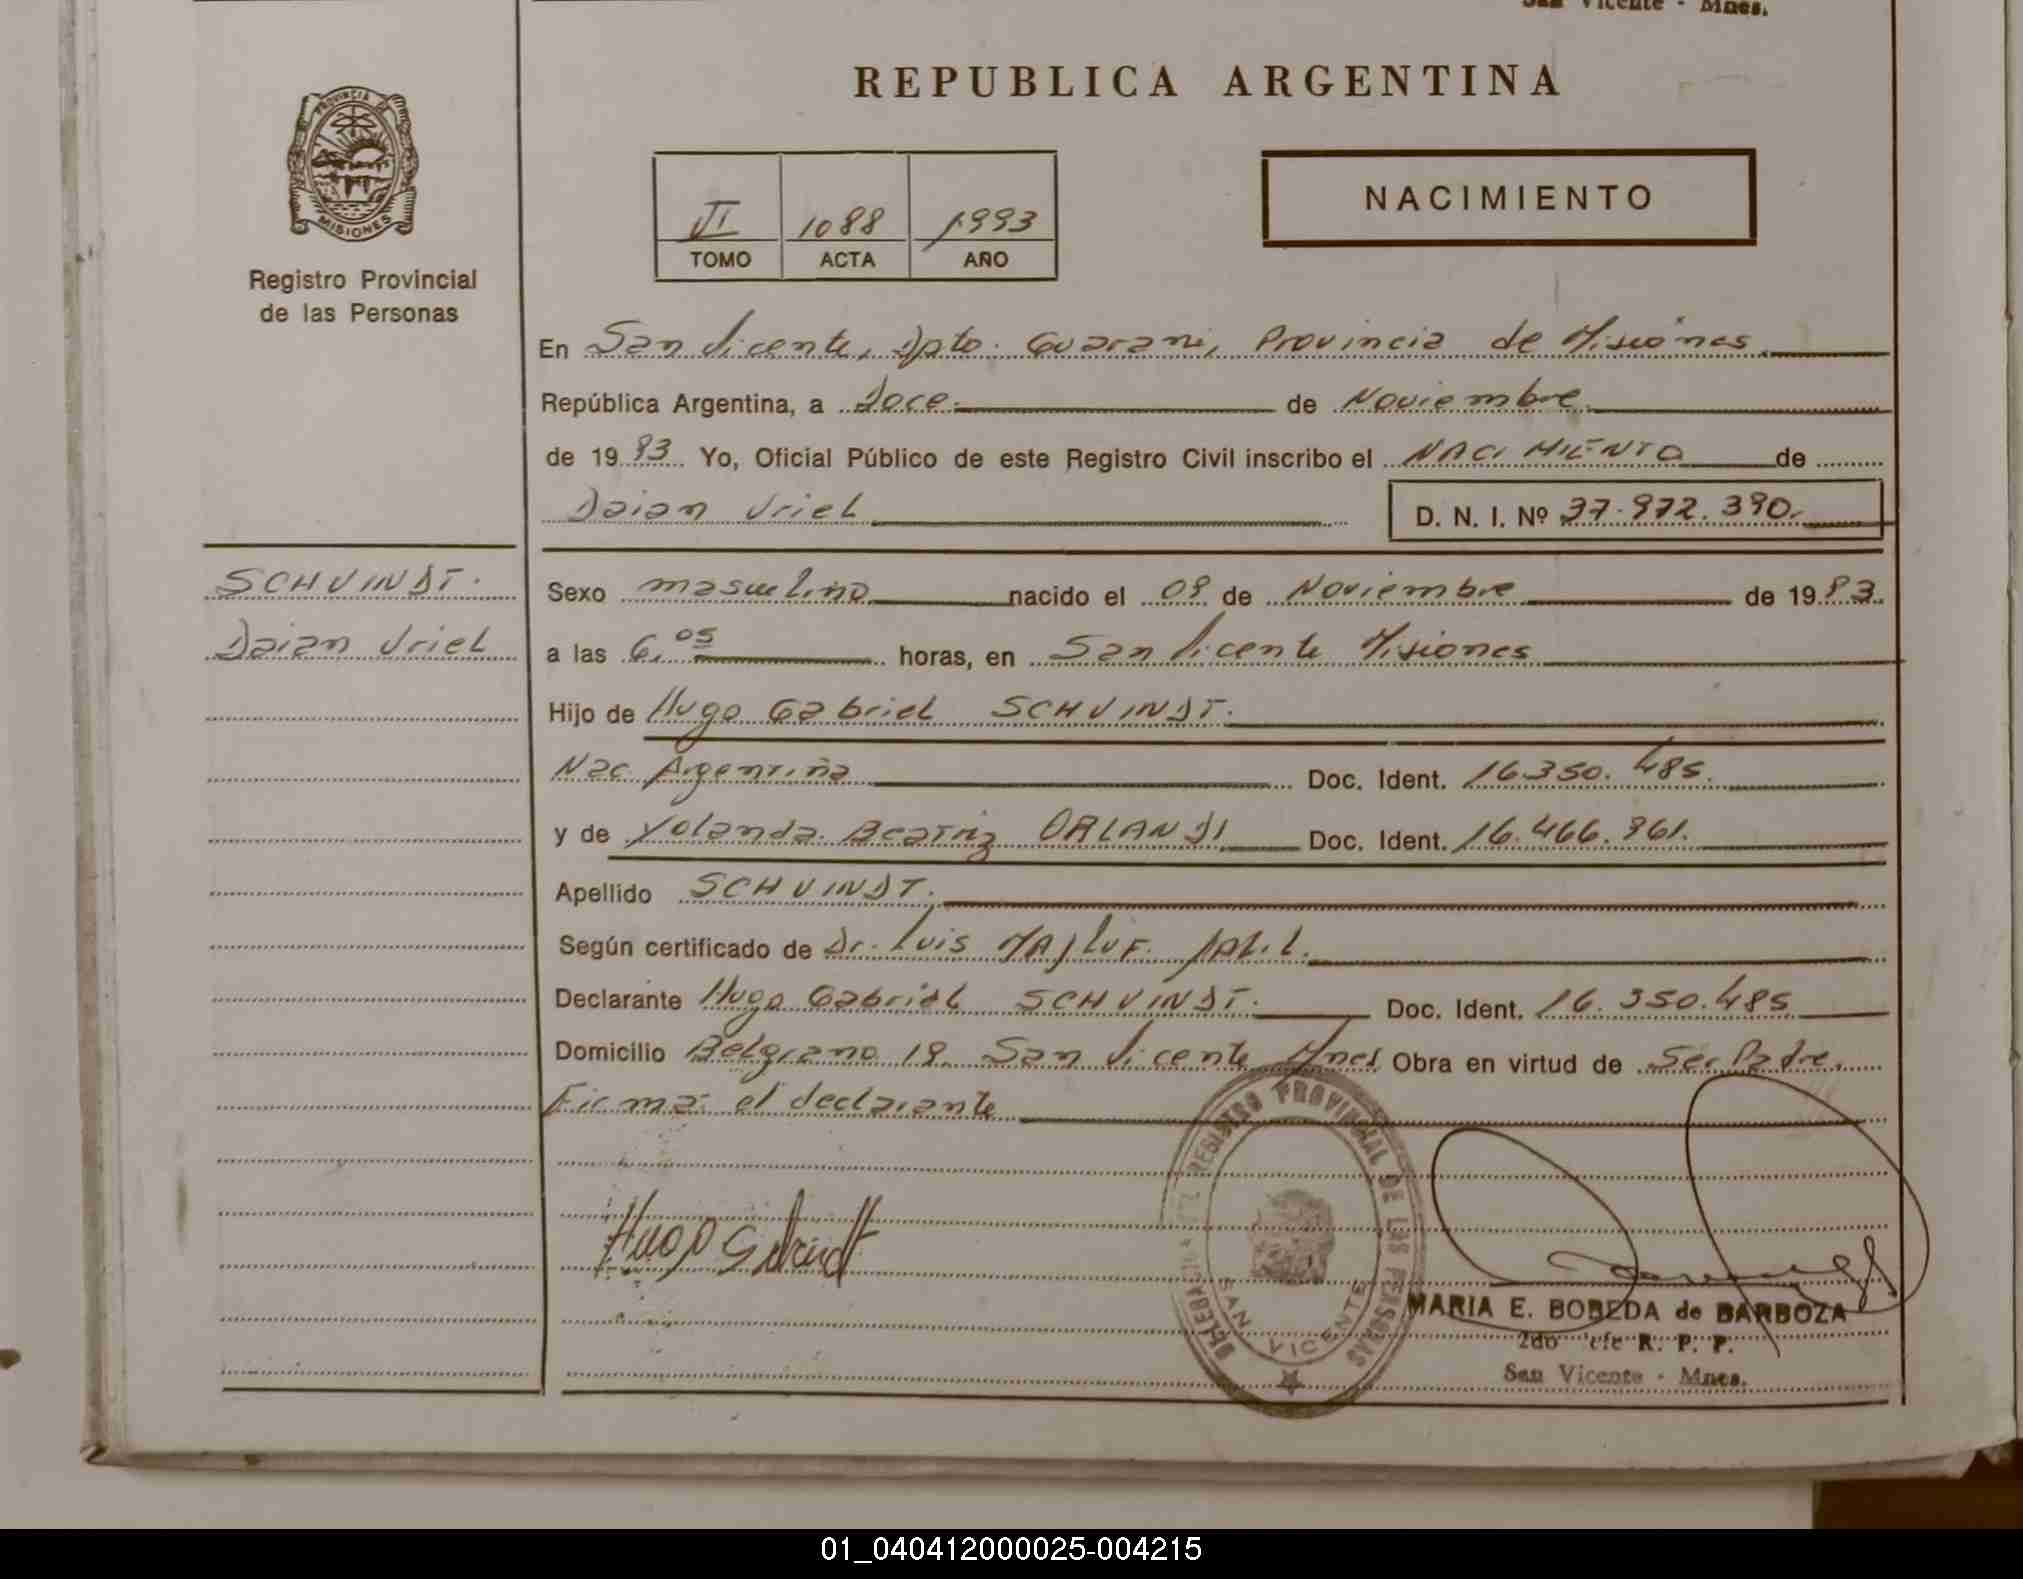 San Vicente - Mnes.
REPUBLICA ARGENTINA
PROVINCIA DE
MISIONES
Registro Provincial
de las Personas
VI 1088 1993
TOMO ACTA AÑO
NACIMIENTO
En San Vicente, Dpto. Guarani, Provincia de Misiones
República Argentina, a Doce de Noviembre
de 1993 Yo, Oficial Público de este Registro Civil inscribo el NACIMIENTO de
Daian Uriel D. N. I. Nº 37.972.390.
SCHVINDT.
Daian Uriel
Sexo masculino nacido el 09 de Noviembre de 1993
a las 6,05 horas, en San Vicente Misiones
Hijo de Hugo Gabriel SCHVINDT.
Nac. Argentina Doc. Ident. 16.350.485.
y de Yolanda Beatriz ORLANDI Doc. Ident. 16.466.961.
Apellido SCHVINDT.
Según certificado de Dr. Luis MAJLUF
Declarante Hugo Gabriel SCHVINDT. Doc. Ident. 16.350.485
Domicilio Belgrano 18. San Vicente Mnes Obra en virtud de Ser Padre.
Firma: el declarante
REGISTRO PROVINCIAL DE LAS PERSONAS
SAN VICENTE
MARIA E. BOBEDA de BARBOZA
2do R. P. P.
San Vicente - Mnes.
01_040412000025-004215